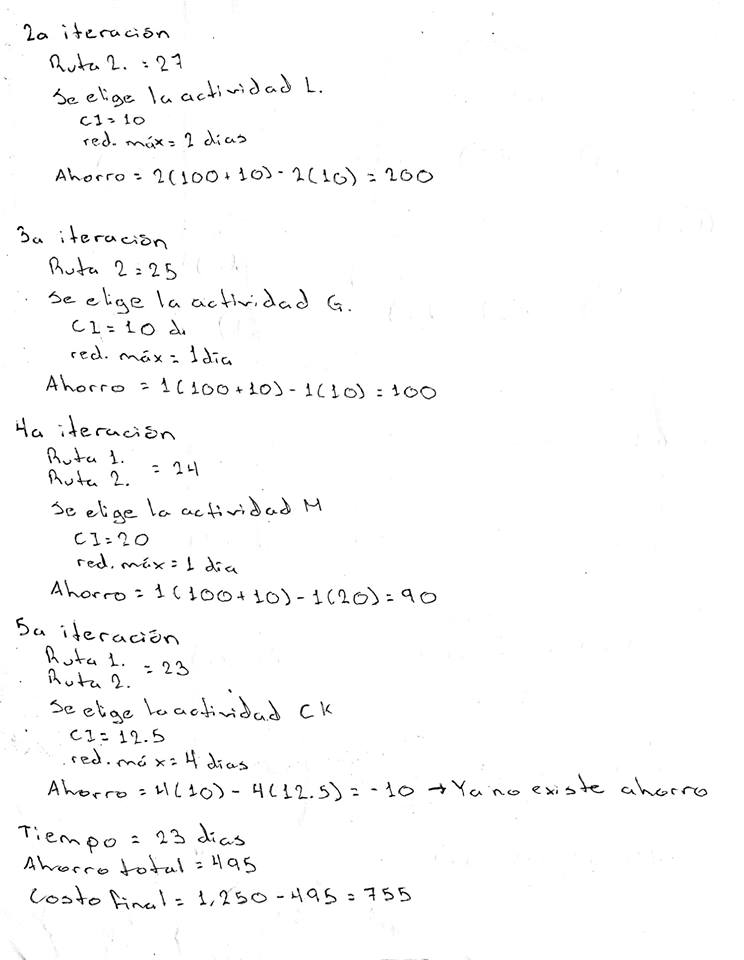 2a iteración
Ruta 2. = 27
Se elige la actividad L.
CI = 10
red. máx = 2 dias
Ahorro = 2(100+10) - 2(10) = 200
3a iteración
Ruta 2 = 25
Se elige la actividad G.
CI = 10 d
red. máx = 1 dia
Ahorro = 1(100+10) - 1(10) = 100
4a iteración
Ruta 1.
Ruta 2. = 24
Se elige la actividad M
CI = 20
red. máx = 1 dia
Ahorro = 1(100+10) - 1(20) = 90
5a iteración
Ruta 1.
Ruta 2. = 23
Se elige la actividad CK
CI = 12.5
red. máx = 4 dias
Ahorro = 4(10) - 4(12.5) = -10 → Ya no existe ahorro
Tiempo = 23 dias
Ahorro total = 495
Costo final = 1,250 - 495 = 755